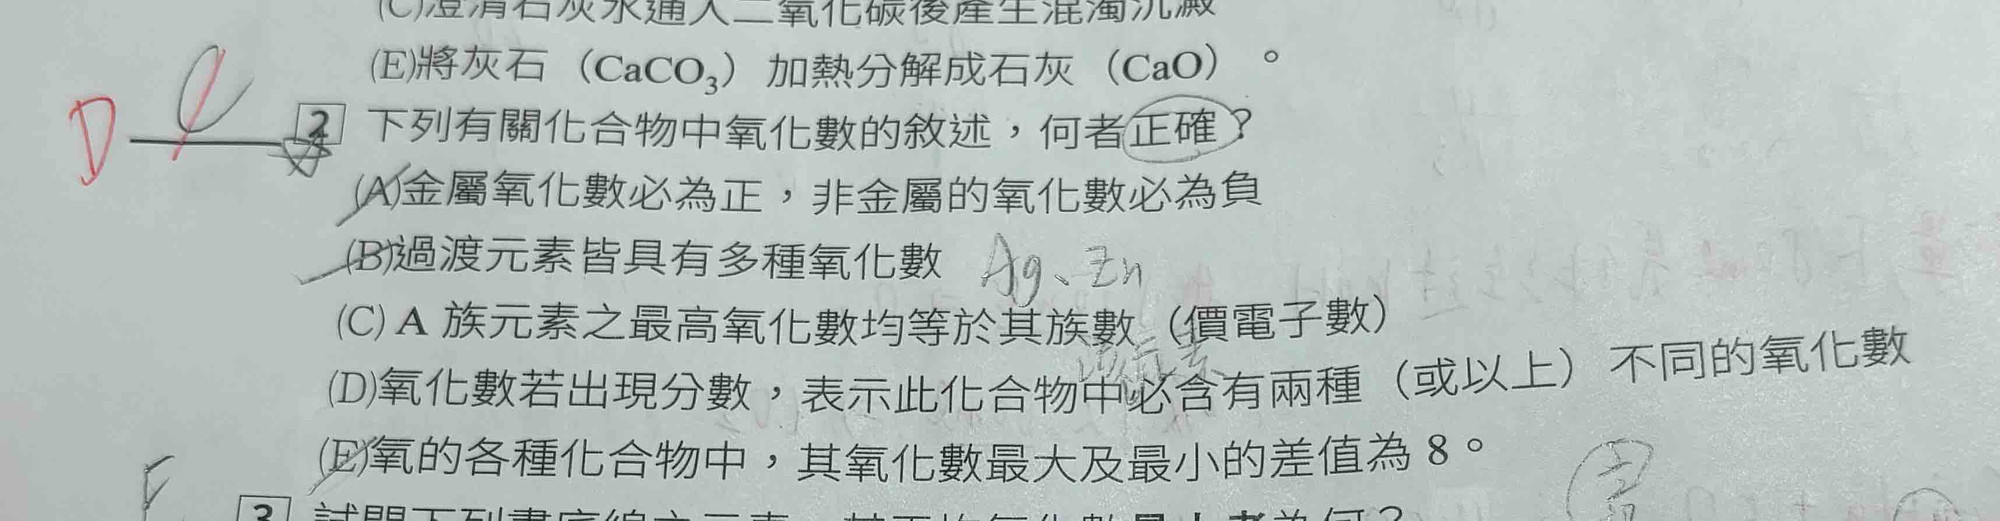 (C)澄清石灰水通入二氧化碳後產生混濁沉澱
(E)將灰石（CaCO₃）加熱分解成石灰（CaO）。
D C 2 下列有關化合物中氧化數的敘述，何者正確？
(A)金屬氧化數必為正，非金屬的氧化數必為負
(B)過渡元素皆具有多種氧化數 Ag、Zn
(C) A 族元素之最高氧化數均等於其族數（價電子數）
(D)氧化數若出現分數，表示此化合物中必含有兩種（或以上）不同的氧化數
(E)氧的各種化合物中，其氧化數最大及最小的差值為 8。
3 試問下列畫底線之元素，其平均氧化數最大者為何？